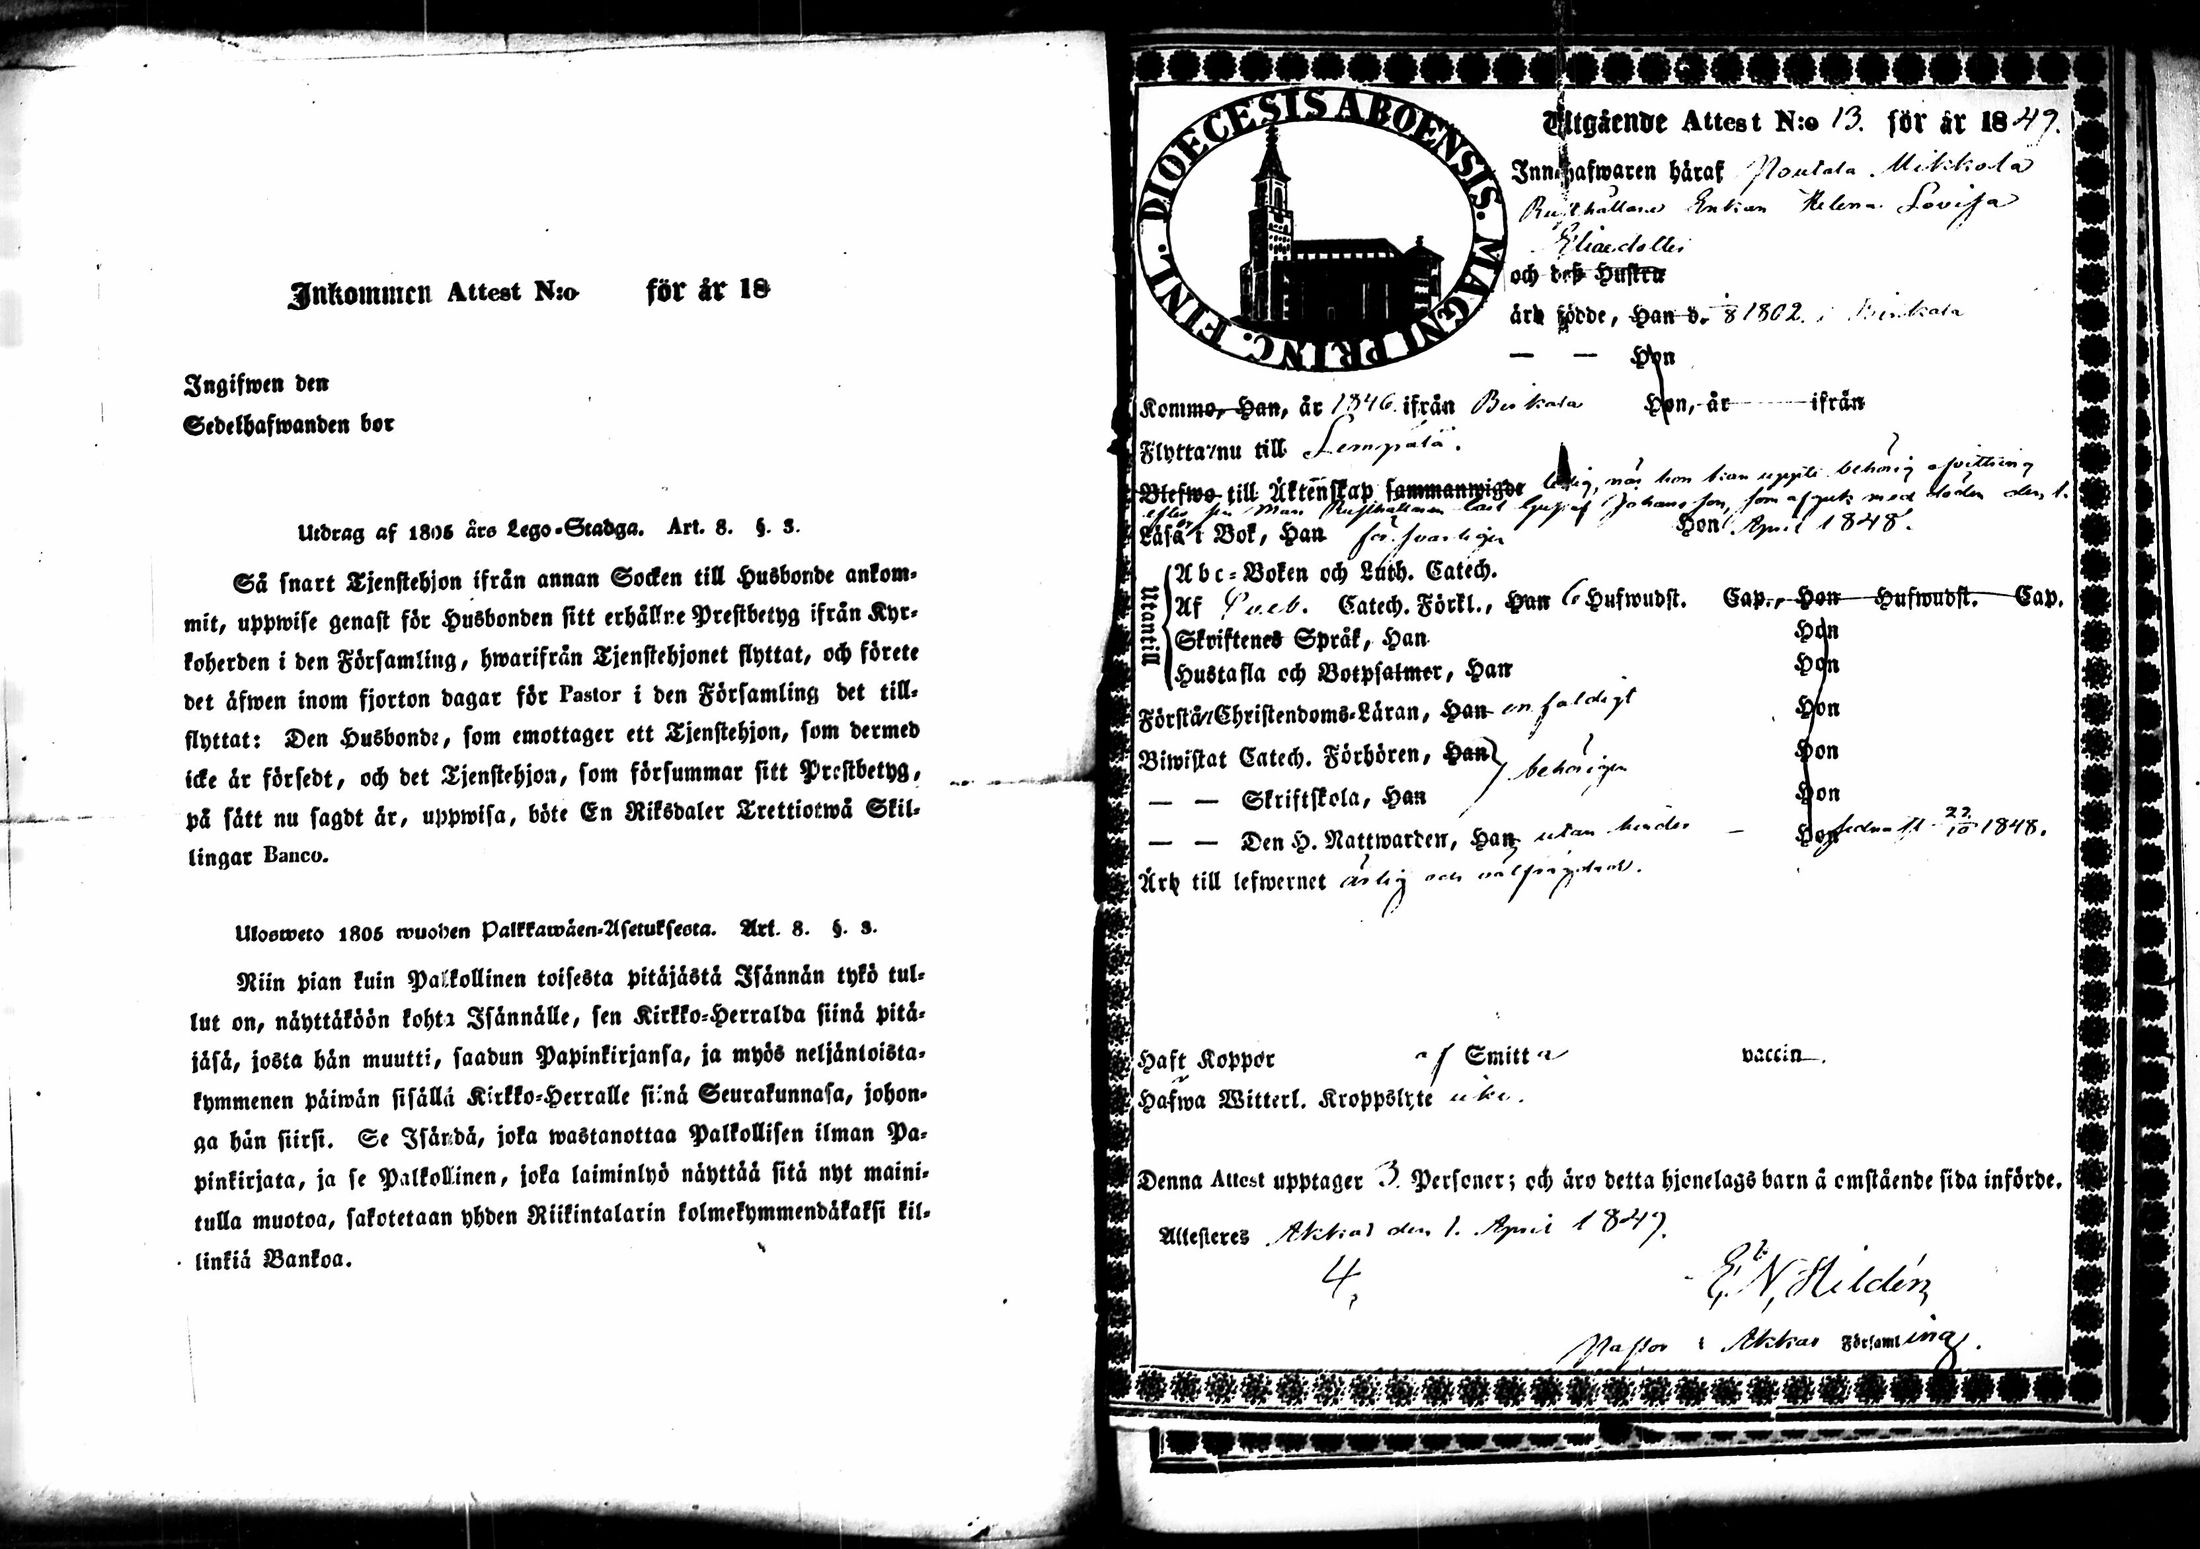 Inkommen Attest N:o för år 18
Ingifwen den
Sedelhafwanden bor
Utdrag af 1805 års Lego-Stadga. Art. 8. §. 3.
Så snart Tjenstehjon ifrån annan Socken till Husbonde ankom-
mit, uppwise genast för Husbonden sitt erhållne Prestbetyg ifrån Kyr-
koherden i den Församling, hwarifrån Tjenstehjonet flyttat, och förete
det äfwen inom fjorton dagar för Pastor i den Församling det till-
flyttat: Den Husbonde, som emottager ett Tjenstehjon, som dermed
icke är försedt, och det Tjenstehjon, som försummar sitt Prestbetyg,
på sätt nu sagdt är, uppwisa, böte En Riksdaler Trettiotwå Skil-
lingar Banco.
Ulosweto 1805 wuoden Palkkawäen-Asetuksesta. Art. 8. §. 3.
Niin pian kuin Palkollinen toisesta pitäjästä Isännän tykö tul-
lut on, näyttäköön kohta Isännälle, sen Kirkko-Herralda siinä pitä-
jäsä, josta hän muutti, saadun Papinkirjansa, ja myös neljäntoista-
kymmenen päiwän sisällä Kirkko-Herralle siinä Seurakunnasa, johon-
ga hän siirsi. Se Isändä, joka wastanottaa Palkollisen ilman Pa-
pinkirjata, ja se Palkollinen, joka laiminlyö näyttää sitä nyt maini-
tulla muotoa, sakotetaan yhden Riikintalarin kolmekymmendäkaksi kil-
linkiä Bankoa.
DIOECESIS ABOENSIS. MAGNI PRINC. FINL.
Utgående Attest N:o 13. för år 1849.
Innehafwaren häraf Mikkola
Rusthållare Enkan Helena Lovisa
Eliaedotter
och dess Hustru
äro födde, Han d. 8 1802. i Birkala
— — Hon
Kommo, Han, år 1846 ifrån Birkala Hon, år ifrån
Flytta nu till Lempälä.
Blefwo till Äktenskap sammanwigde ledig, när hon kan uppte behörig afvittring
efter sin man Rusthållaren Carl Gustaf Johansson, som afgick med döden den 1.
Läsa i Bok, Han försvarligen Hon April 1848.
Utantill
Abc-Boken och Luth. Catech.
Af Sveb. Catech. Förkl., Han 6 Hufwudst. Cap., Hon Hufwudst. Cap.
Skriftenes Språk, Han Hon
Hustafla och Botpsalmer, Han Hon
Förstå Christendoms-Läran, Han enfaldigt Hon
Biwistat Catech. Förhören, Han behörigen Hon
— — Skriftskola, Han Hon
— — Den H. Nattwarden, Han utan hinder — Hon sednast 22/10 1848.
Äro till lefwernet ärlig och välfrägdad.
Haft Koppor af Smitta vaccin
Hafwa Witterl. Kroppslyte icke.
Denna Attest upptager 3 Personer; och äro detta hjonelags barn å omstående sida införde.
Attesteres Akkas den 1. April 1849.
4
E. N. Hildén
Pastor i Akkas Församling.